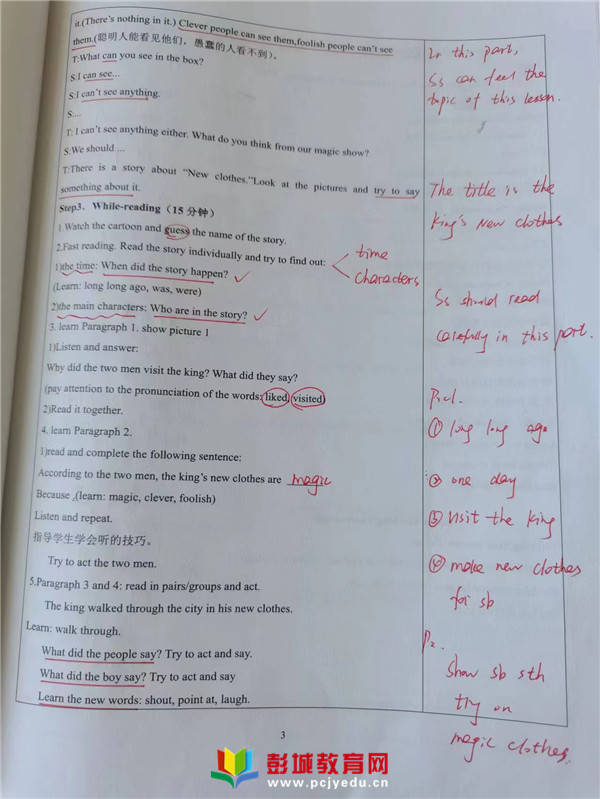 it.(There's nothing in it.) Clever people can see them,foolish people can't see
them.(聪明人能看见他们，愚蠢的人看不到)。
T:What can you see in the box?
S:I can see...
S:I can't see anything.
S:...
T: I can't see anything either. What do you think from our magic show?
S:We should ...
T:There is a story about “New clothes.”Look at the pictures and try to say
something about it.
Step3．While-reading（15 分钟）
1.Watch the cartoon and guess the name of the story.
2.Fast reading. Read the story individually and try to find out:
time
characters
1)the time: When did the story happen?
(Learn: long long ago, was, were)
2)the main characters: Who are in the story?
3. learn Paragraph 1. show picture 1
1)Listen and answer:
Why did the two men visit the king? What did they say?
(pay attention to the pronunciation of the words: liked, visited)
2)Read it together.
4. learn Paragraph 2.
1)read and complete the following sentence:
According to the two men, the king's new clothes are magic
Because ,(learn: magic, clever, foolish)
Listen and repeat.
指导学生学会听的技巧。
Try to act the two men.
5.Paragraph 3 and 4: read in pairs/groups and act.
The king walked through the city in his new clothes.
Learn: walk through.
What did the people say? Try to act and say.
What did the boy say? Try to act and say
Learn the new words: shout, point at, laugh.
In this part,
Ss can feel the
topic of this lesson.
The title is the
King's New clothes
Ss should read
carefully in this part.
P1.
① long long ago
② one day
③ visit the king
④ make new clothes
for sb
P2.
show sb sth
try on
magic clothes.
3
彭城教育网
www.pcjyedu.cn